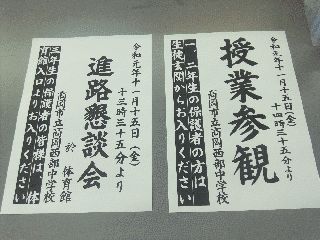 令和元年十一月十五日(金)
十四時三十五分より
授業参観
高岡市立高岡西部中学校
一、二年生の保護者の方は
生徒玄関からお入りください
令和元年十一月十五日(金)
十三時三十五分より
進路懇談会
於 体育館
高岡市立高岡西部中学校
三年生の保護者の皆様は、体
育館入口よりお入りください